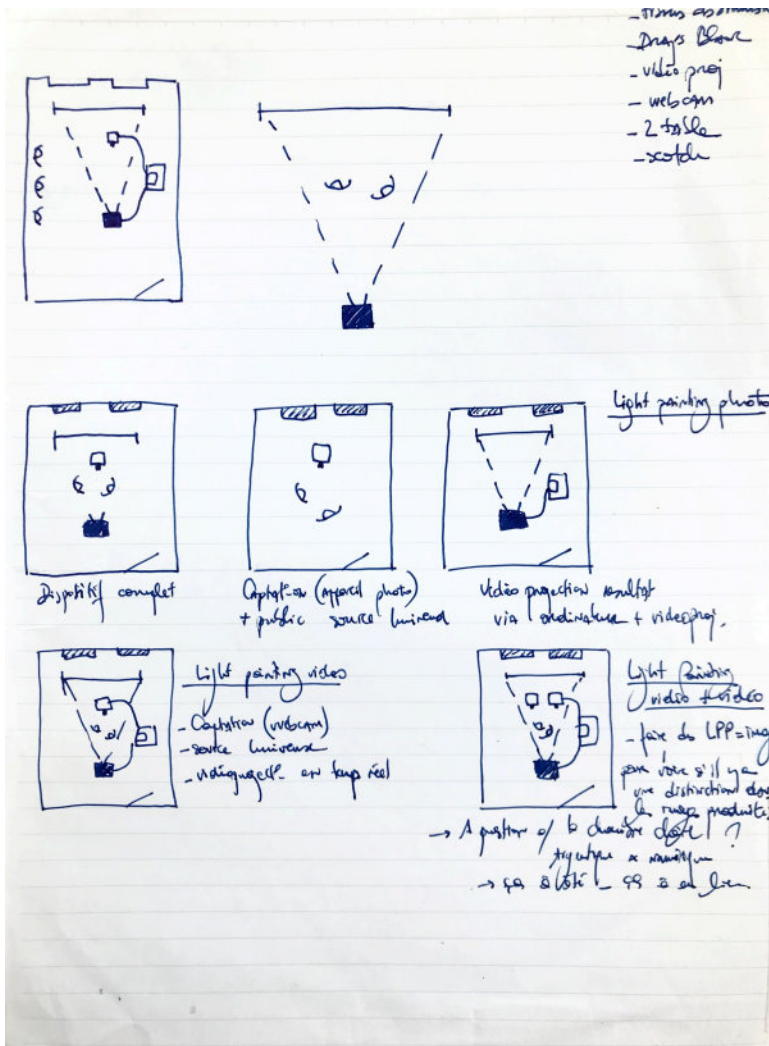 - Draps Blanc
- vidéo proj
- webcam
- 2 table
- scotch
Light painting photo
Dispositif complet
Captat-on (Appareil photo)
+ public source lumineuse
Vidéo projection resultat
via ordinateur + videoproj.
Light painting video
- Captation (webcam)
- source lumineuse
- en temps réel
Light Painting
vidéo + vidéo
- faire des LPP = 
pour voir s'il y a
une distinction dans
les images produites
→ à côté